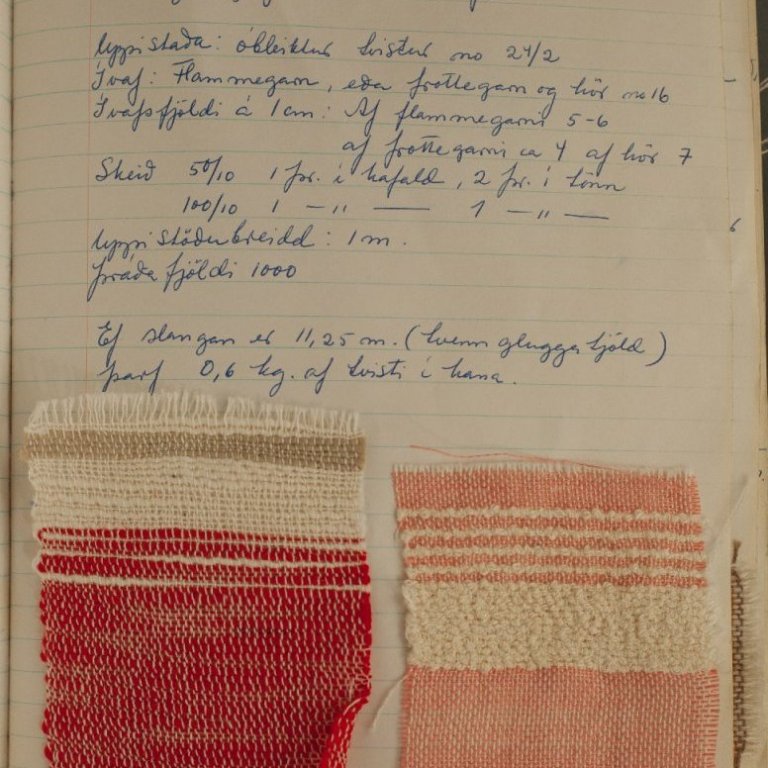 Uppistaða: óbleiktur tvistur no 24/2
Ívaf: Flammegarn, eða frottegarn og hör no 16
Ívafsfjöldi á 1 cm: Af flammegarni 5-6
af frottegarni ca 4 af hör 7
Skeið 50/10 1 þr. í hafald, 2 þr. í tönn
100/10 1 — " — 1 — " —
Uppistöðubreidd: 1 m.
Þráðafjöldi 1000
Ef slangan er 11,25 m. (tvenn gluggatjöld)
þarf 0,6 kg. af tvisti í hana.